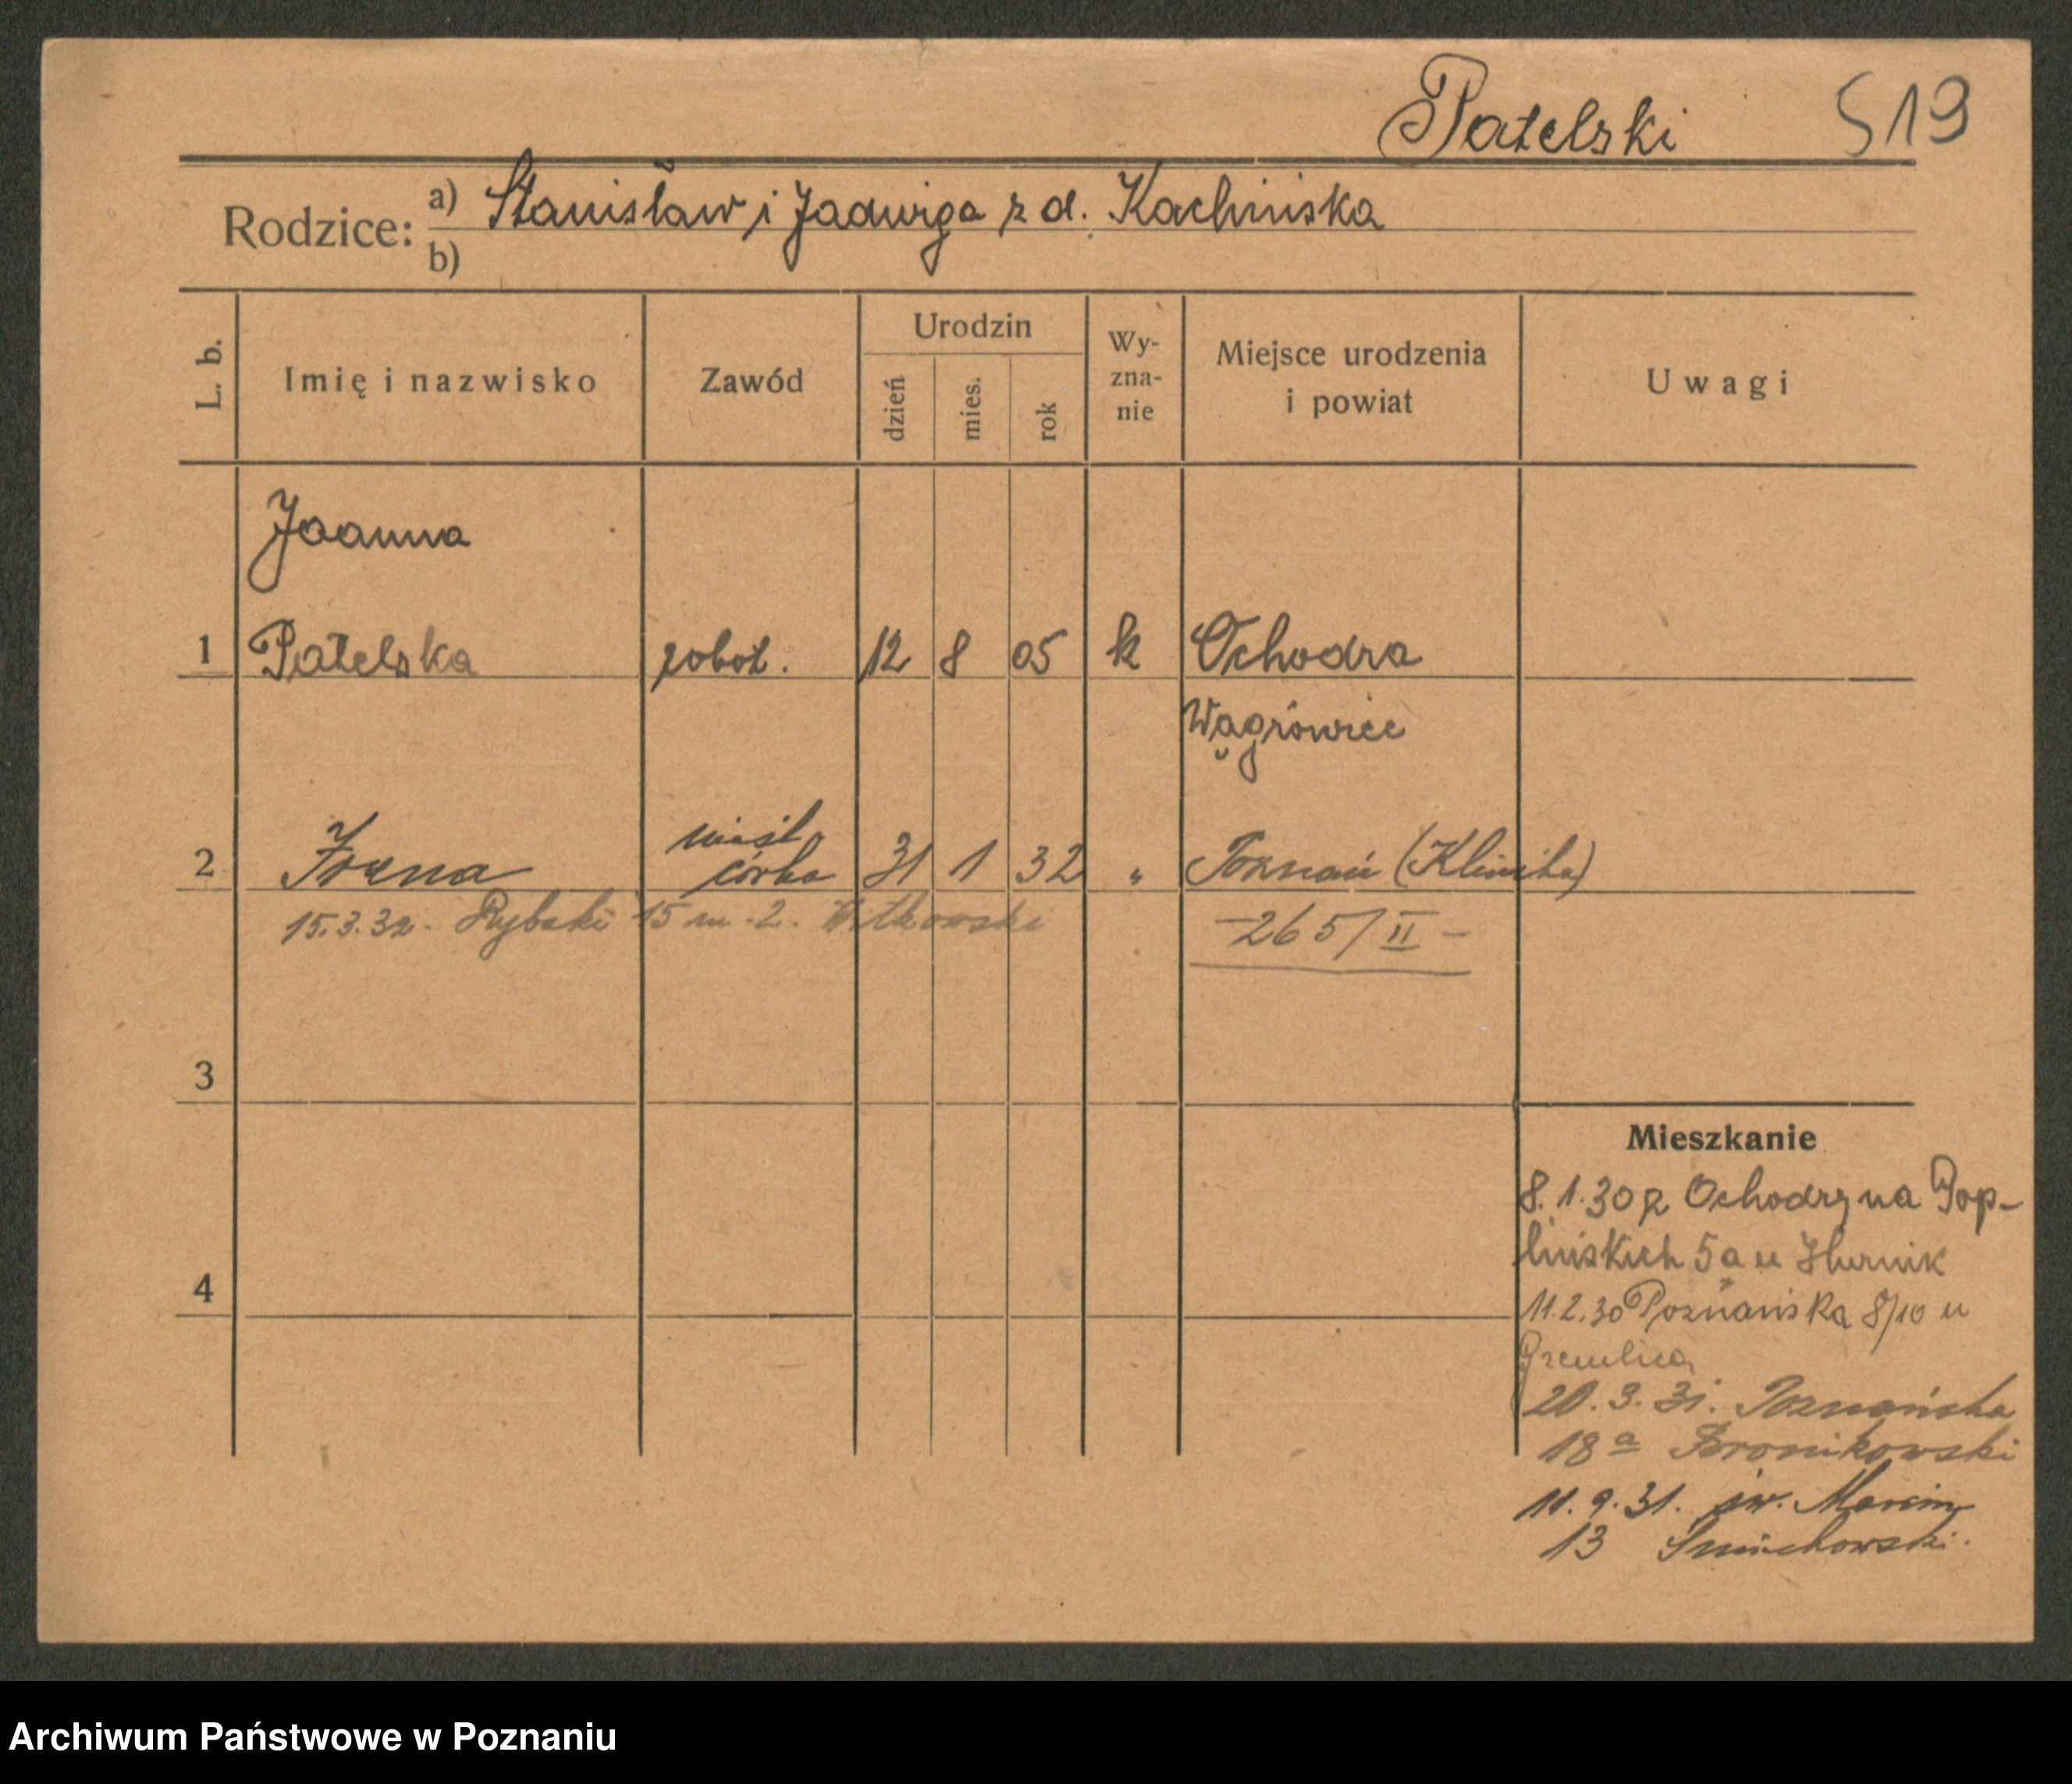 Patelski 519
Rodzice: a) Stanisław i Jadwiga z d. Kachińska
b)
L. b. Imię i nazwisko Zawód Urodzin dzień mies. rok Wy-zna-nie Miejsce urodzenia i powiat Uwagi
Joanna
1 Patelska robot. 12 8 05 k Ochodza
Wągrówiec
nieśl.
2 Irena córka 31 1 32 " Poznań (Klinika)
15.3.32. Rybaki 15 m. 2. Witkowski -265/II-
3
Mieszkanie
8.1.30 z Ochodzy na Pop-
lińskich 5a u
4
11.2.30 Poznańska 8/10 u
20.3.31. Poznańska
18a Bronikowski
11.9.31. św. Marcin
13 Śmichowski.
Archiwum Państwowe w Poznaniu